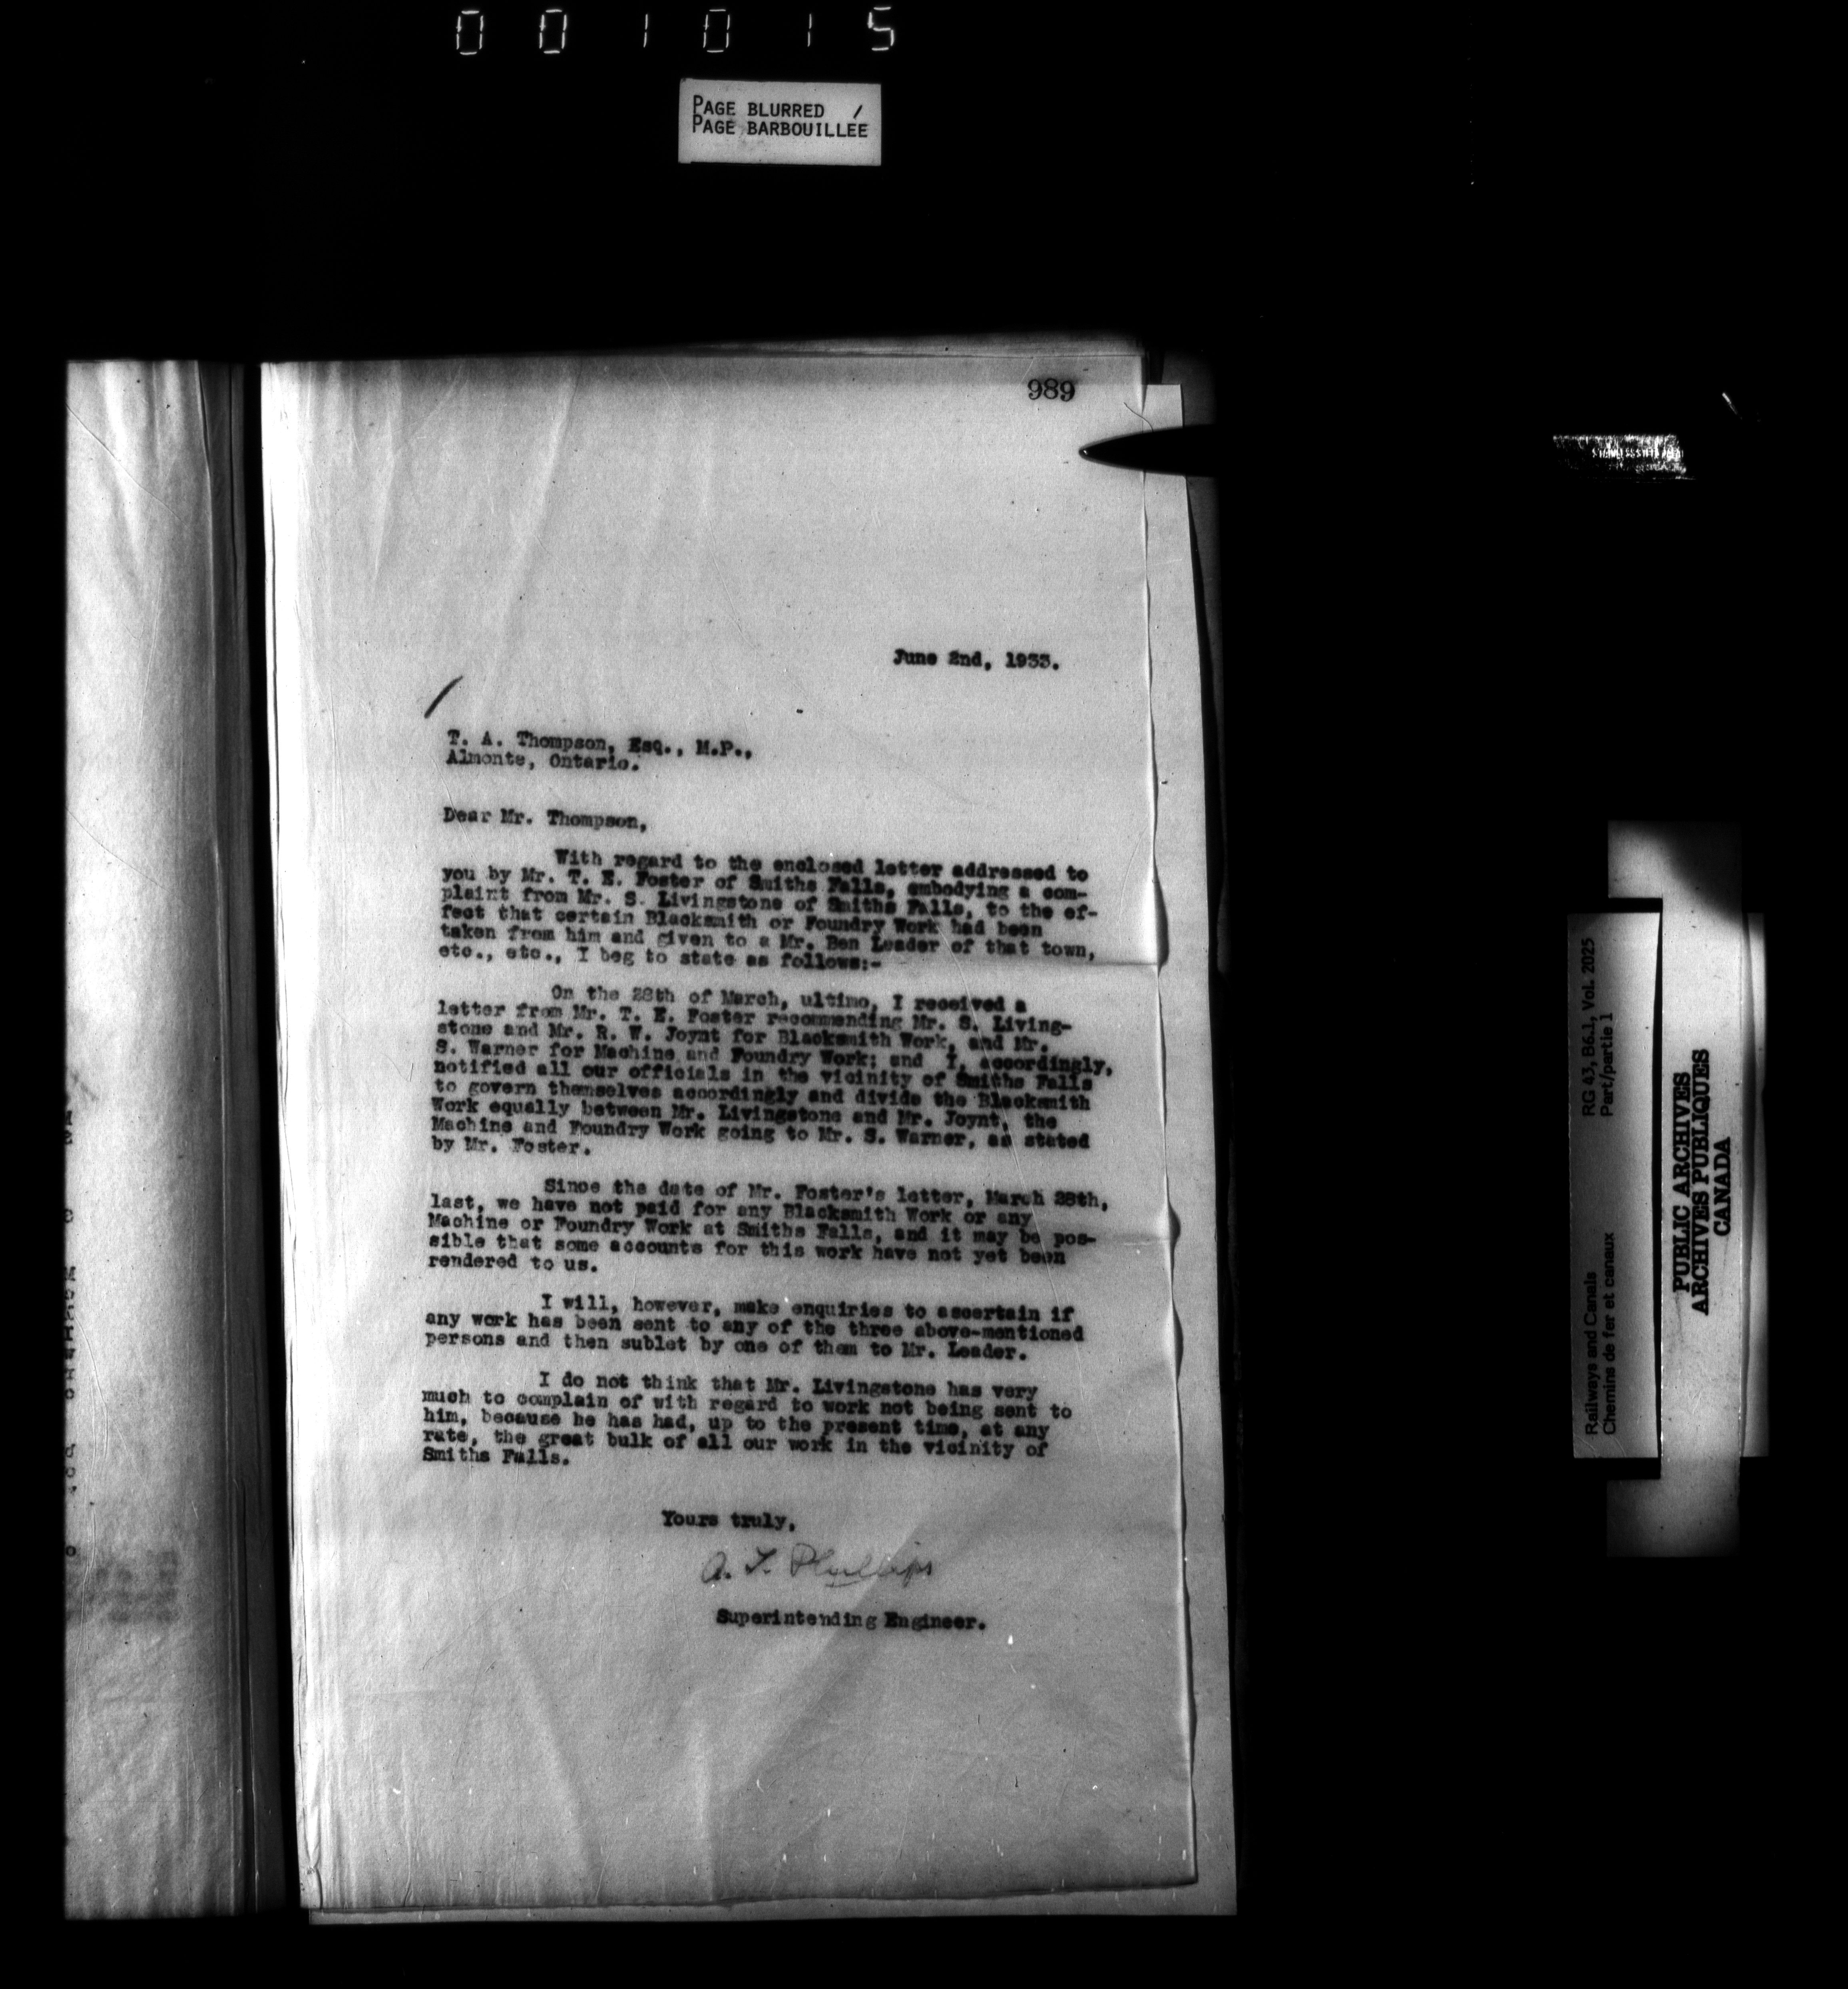 001015
PAGE BLURRED /
PAGE BARBOUILLEE
989
June 2nd, 1933.
T. A. Thompson, Esq., M.P.,
Almonte, Ontario.
Dear Mr. Thompson,
With regard to the enclosed letter addressed to
you by Mr. T. E. Foster of Smiths Falls, embodying a com-
plaint from Mr. S. Livingstone of Smiths Falls, to the ef-
fect that certain Blacksmith or Foundry Work had been
taken from him and given to a Mr. Ben Leader of that town,
etc., etc., I beg to state as follows:-
On the 28th of March, ultimo, I received a
letter from Mr. T. E. Foster recommending Mr. S. Living-
stone and Mr. R. W. Joynt for Blacksmith Work, and Mr.
S. Warner for Machine and Foundry Work; and I, accordingly,
notified all our officials in the vicinity of Smiths Falls
to govern themselves accordingly and divide the Blacksmith
Work equally between Mr. Livingstone and Mr. Joynt, the
Machine and Foundry Work going to Mr. S. Warner, as stated
by Mr. Foster.
Since the date of Mr. Foster's letter, March 28th,
last, we have not paid for any Blacksmith Work or any
Machine or Foundry Work at Smiths Falls, and it may be pos-
sible that some accounts for this work have not yet been
rendered to us.
I will, however, make enquiries to ascertain if
any work has been sent to any of the three above-mentioned
persons and then sublet by one of them to Mr. Leader.
I do not think that Mr. Livingstone has very
much to complain of with regard to work not being sent to
him, because he has had, up to the present time, at any
rate, the great bulk of all our work in the vicinity of
Smiths Falls.
Yours truly,
A. T. Phillips
Superintending Engineer.
RG 43, B6.1, Vol. 2025
Part/partie 1
Railways and Canals
Chemins de fer et canaux
PUBLIC ARCHIVES
ARCHIVES PUBLIQUES
CANADA